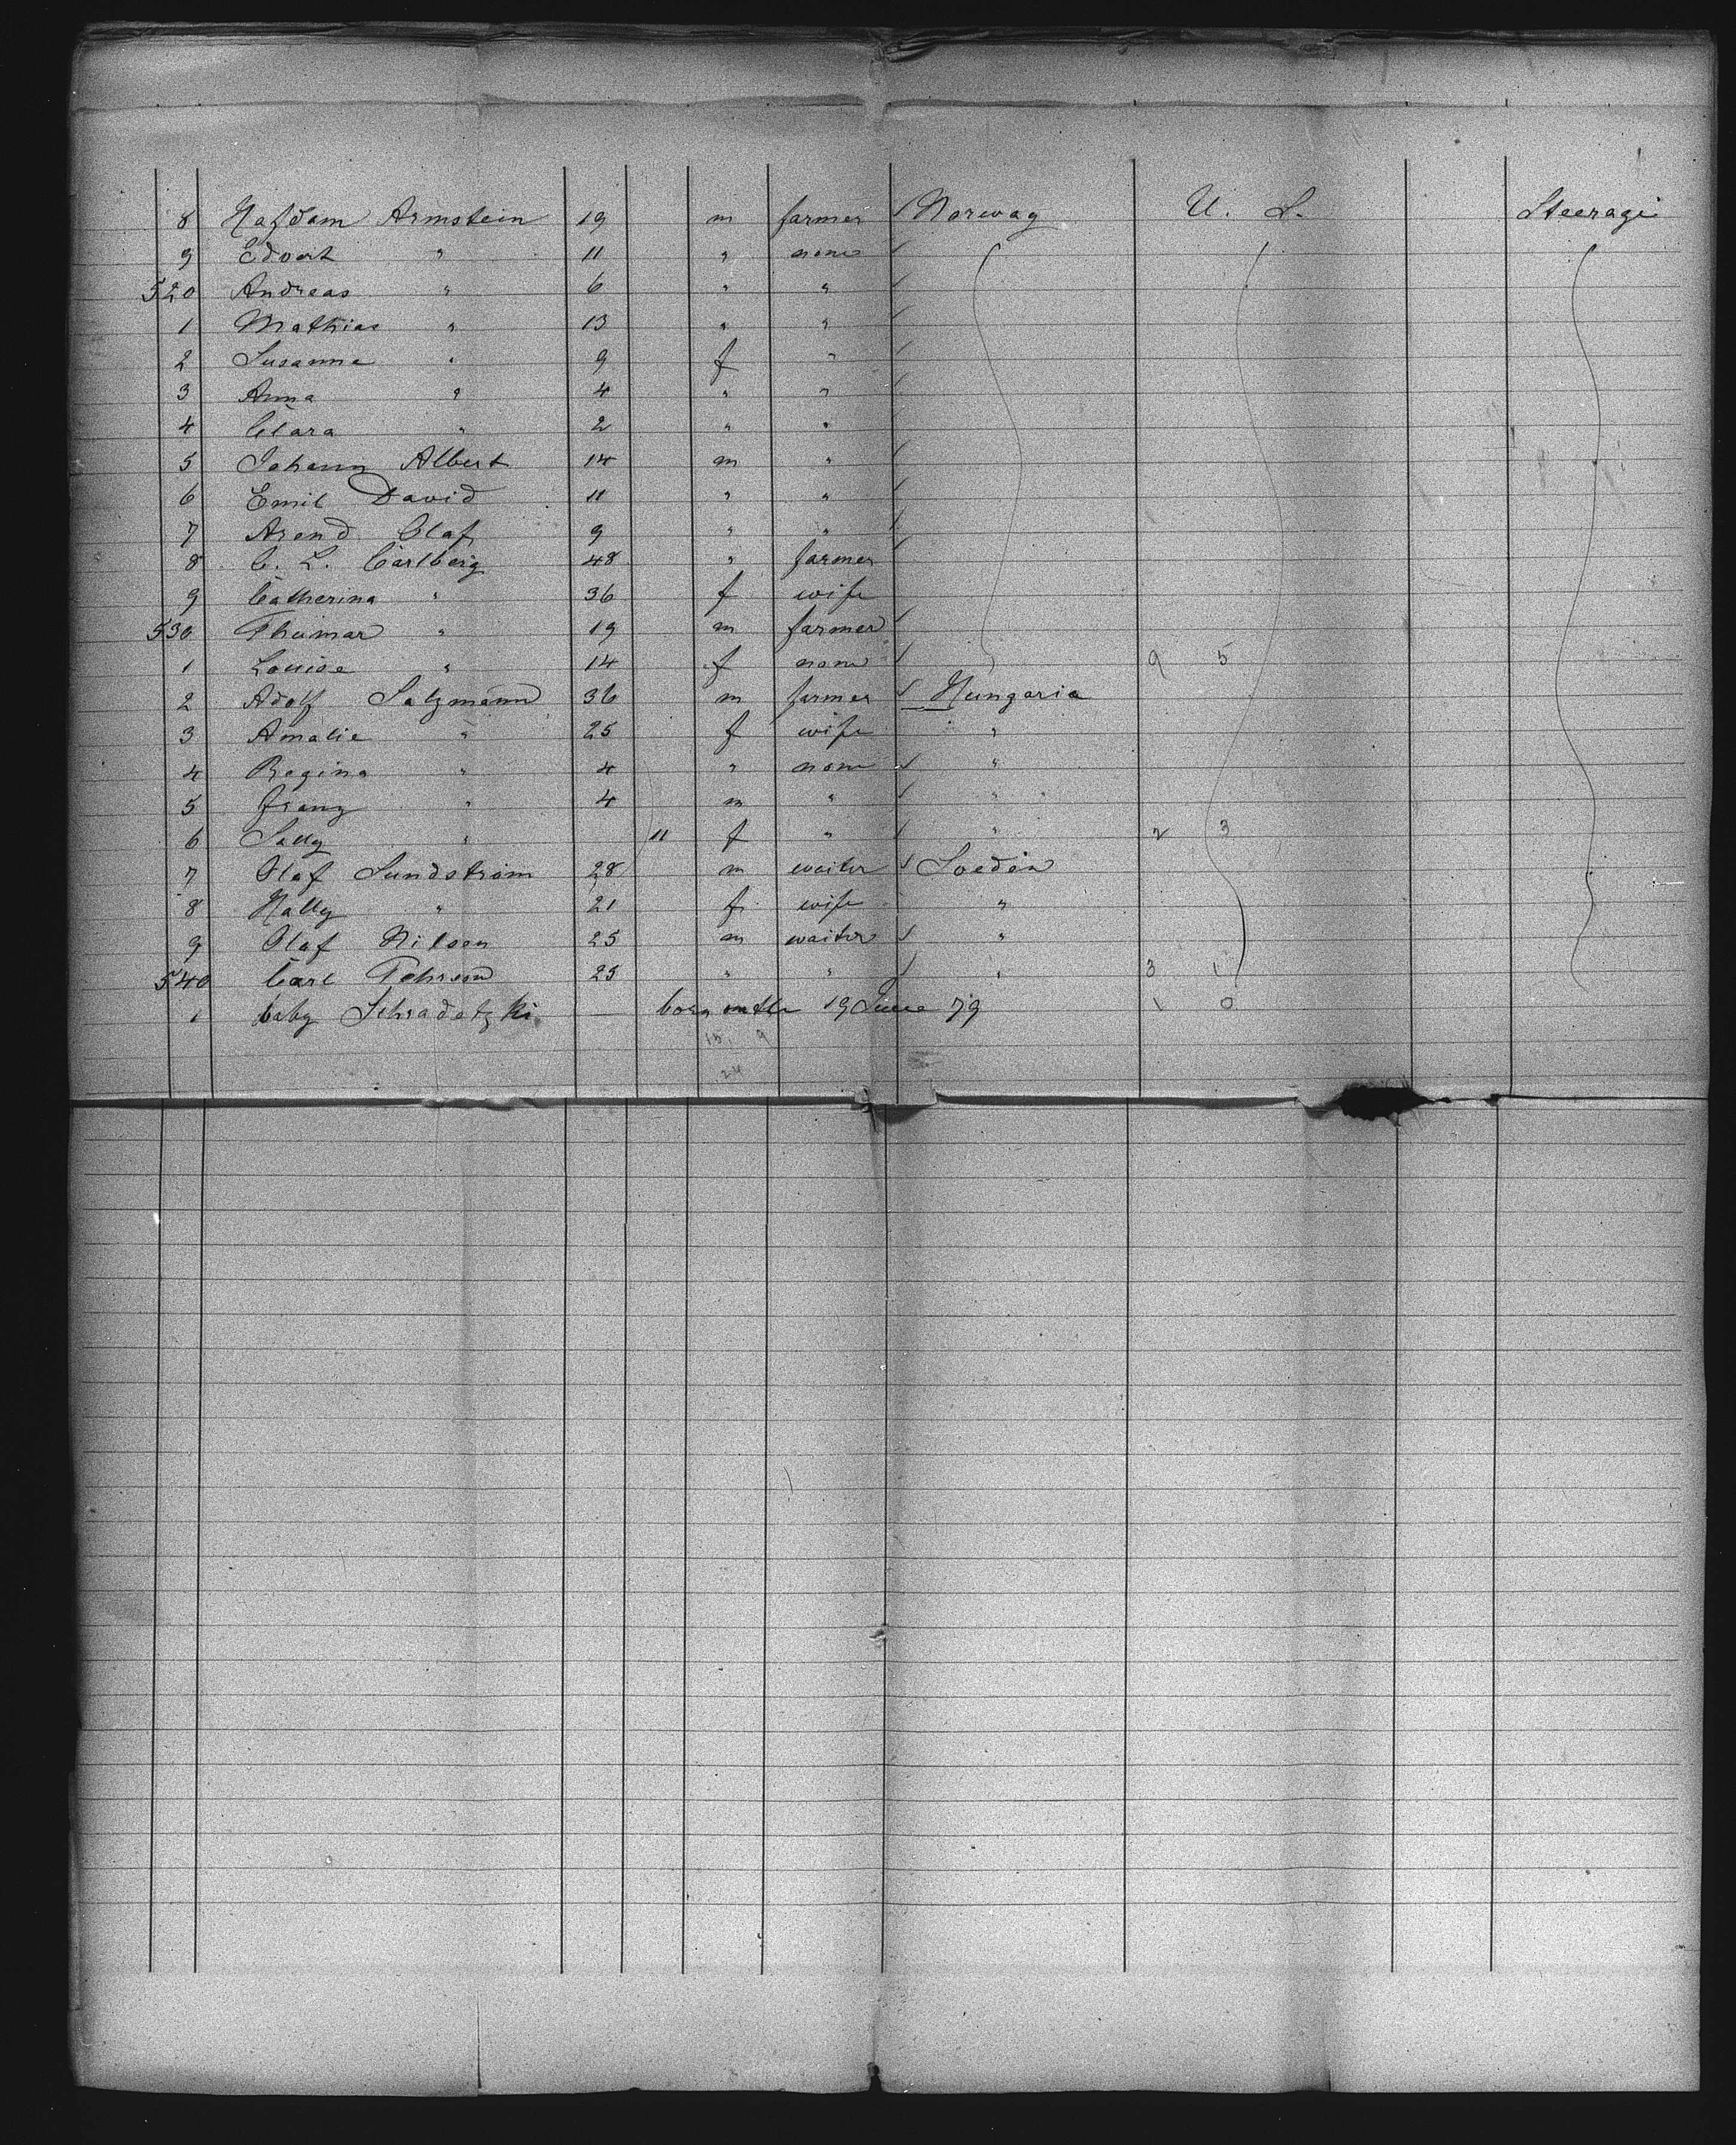 8 Hafdam Armstein 19 m farmer Norway U. S. Steerage
9 Edvart " 11 " none
520 Andreas " 6 " "
1 Mathias " 13 " "
2 Susanne " 9 f "
3 Anna " 4 " "
4 Clara " 2 " "
5 Johann Albert 14 m "
6 Emil David 11 " "
7 Arend Olaf 9 " "
8 C. L. Carlberg 48 " farmer
9 Catherina " 36 f wife
530 Thumar " 19 m farmer
1 Louise " 14 f none 9 5
2 Adolf Salzmann 36 m farmer Hungaria
3 Amalie " 25 f wife "
4 Regina " 4 " none "
5 Franz " 4 m " "
6 Sally " 11 f " " 2 3
7 Olaf Sundstrom 28 m waiter Sveden
8 Hally " 21 f wife "
9 Olaf Nilsen 25 m waiter "
540 Carl Pehrson 25 " " " 3 1
1 baby Schradetzki — born on the 19 June 79 1 0
15 9
24